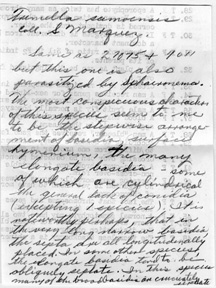 Tremella samoensis
Coll. S Marquez.
Same as 27075 & 9011
but this one is also
parasitized by Sphaeronema.
The most conspicuous characters
of this species seem to me
to be the stepwise arrange-
ment of basidia, surface
hymenium, the many
elongate basidia some
of which are cylindrical
the general lack of conidia
(excepting 1 species). It is
noteworthy perhaps, that in
the very long narrow basidia,
the septa are all longitudinally
placed. In some other species
the elongate basidia tend to be
obliquely septate. In this species
many of the broad basidia are cruciately
septate